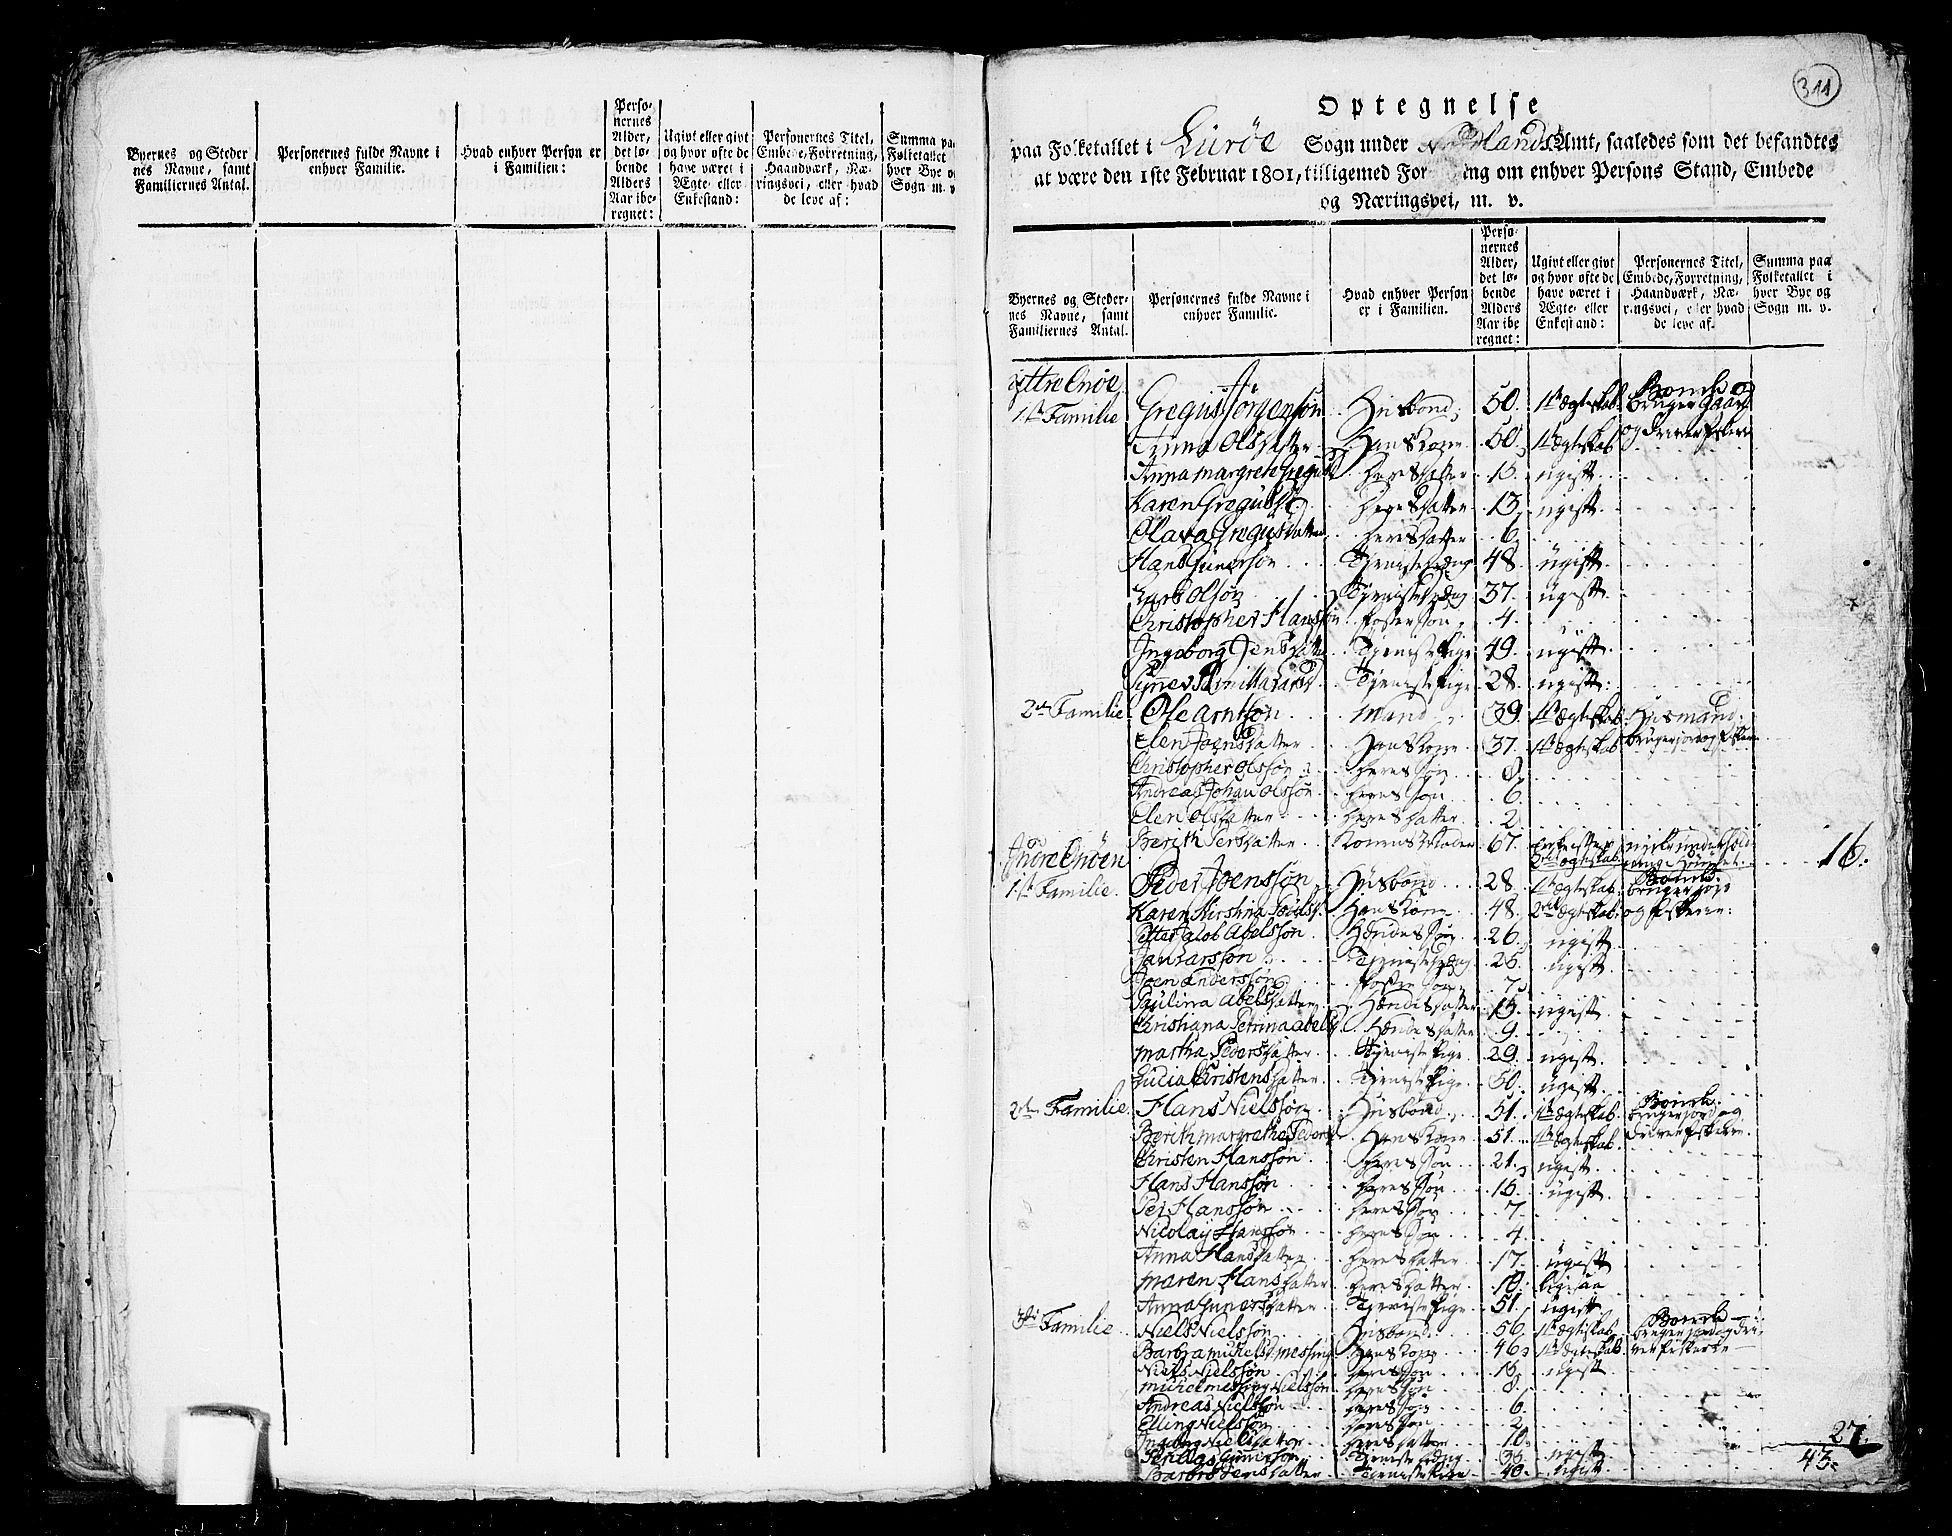 Byernes og Steder
nes Navne, samt
Familiernes Antal.
Personernes fulde Navne i
enhver Familie.
Hvad enhver Person er
i Familien:
Perso-
nernes
Alder,
det lø-
bende
Alders
Aar ibe-
regnet:
Ugivt eller givt
og hvor ofte de
have været i
Ægte- eller
Enkestand:
Personernes Titel,
Embede, Forretning,
Haandværk, Næ-
ringsvei, eller hvad
de leve af:
Summa paa
Folketallet
hver Bye og
Sogn m. v.
311
Optegnelse
paa Folketallet i Lurøe Sogn under Nordlands Amt, saaledes som det befandtes
at være den 1ste Februar 1801, tilligemed For ing om enhver Persons Stand, Embede
og Næringsvei, m. v.
Byernes og Steder-
nes Navne, samt
Familiernes Antal.
Personernes fulde Navne i
enhver Familie.
Hvad enhver Person
er i Familien.
Perso-
nernes
Alder,
det lø-
bende
Alders
Aar ibe
regnet:
Ugivt eller givt
og hvor ofte de
have været i
Ægte- eller
Enkestand:
Personernes Titel,
Embede, Forretning,
Haandværk, Næ-
ringsvei, eller hvad
de leve af.
Summa paa
Folketallet i
hver Bye og
Sogn m. v.
Yttre Onøe
1ste Familie Gregus Jörgensön Huusbond 50 1te Ægteskab Bonde og bruger Gaard
Anna Olsdatter Hans Kone 50 1te Ægteskab og driver fiskerie
Anna Margrete Gregusd. deres datter 15 ugift
Karen Gregusd. deres datter 13 ugift
Olava Gregusdatter deres datter 6
Hans Gunersön Tieniste dreng 48 ugift
Olsön Tieniste dreng 37 ugift
Christopher Hanssön foster søn 4
Ingeborg Jensdatter Tieniste Pige 49 ugift
Larsd. Tieniste Pige 28 ugift
2den Familie Ole Arntsön Mand 39 1te Ægteskab Huusmand
Elen Joensdatter Hans Kone 37 1te Ægteskab bruger jord og fiskerie
Christopher Olssön deres søn 8
Andreas Johan Olssön deres søn 6
Elen Olsdatter deres datter 2
Berith Persdatter Konens Moder 67
Indre Onöen 16.
1ste Familie Peder Joenssön Huusbond 28 1te Ægteskab Bonde bruger jord
Karen Kirstina Poulsd. Hans Kone 48 2det Ægteskab og fiskerie
Petter Jacob Abelssön Hendes søn 26 ugift
Jan Larssön Tieniste dreng 26 ugift
Joen Anderssön foster søn 7
Paulina Abelsdatter Hendes datter 15 ugift
Christiana Petrina Abelsd. Hendes datter 9
Martha Pedersdatter Tieniste Pige 29 ugift
Lucia Christensdatter Tieniste Pige 50 ugift
2den Familie Hans Nielssön Huusbond 51 1te Ægteskab Bonde bruger jord og
Berith Margrethe Pedersd. Hans Kone 51 1te Ægteskab driver fiskerie
Christen Hanssön deres søn 21 ugift
Hans Hanssön deres søn 16 ugift
Pei Hanssön deres søn 7
Nicolay Hanssön deres søn 4
Anna Hansdatter deres datter 17 ugift
Maren Hansdatter deres datter 10 ligesaa
Anna Gunersdatter Tieniste Pige 51 ugift
3die Familie Niels Nielssön Huusbond 56 1te Ægteskab Bonde bruger jord og dri-
Barbra Michelsd. Messing Hans Kone 46 1te Ægteskab ver fiskerie
Niels Nielssön deres søn 15 ugift
Michel Messing Nielssön deres søn 8
Andreas Nielssön deres søn 6
Elling Nielssön deres søn 2
Ingeborg Nielsdatter deres datter 10
Gunersön Tieniste dreng 36 ugift
Barbra Jensdatter Tieniste Pige 40 ugift
27
43.